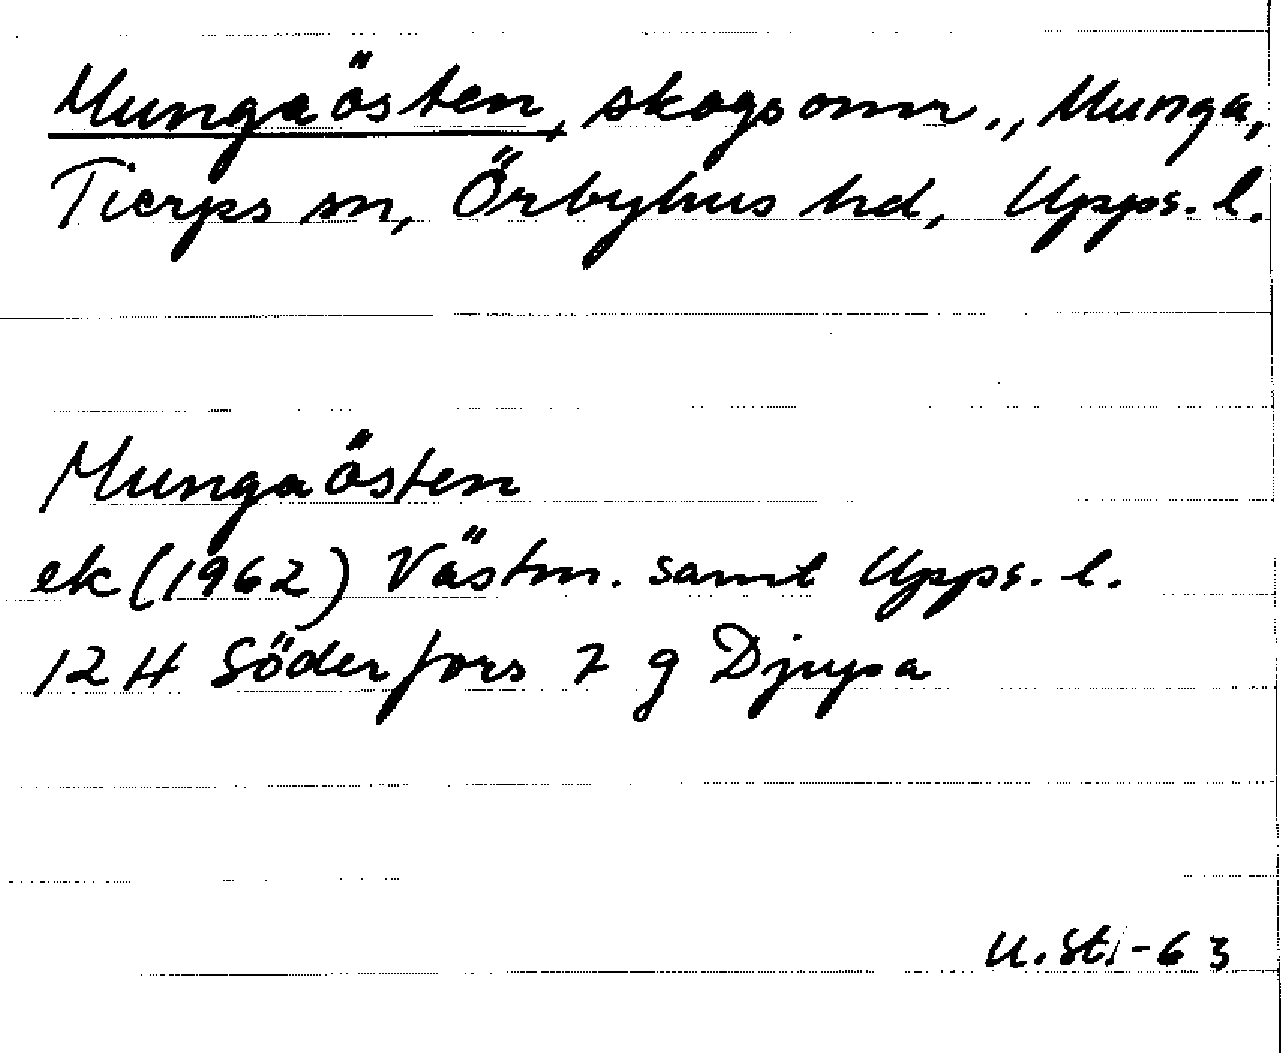 Mungaösten, skogsomr., Munga,
Tierps sn, Örbyhus hd, Upps. l.
Mungaösten
ek (1962) Västm. samt Upps. l.
12 H Söderfors 7 g Djupa
U. St. -63